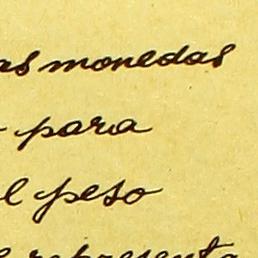 as monedas
para
el peso
representa